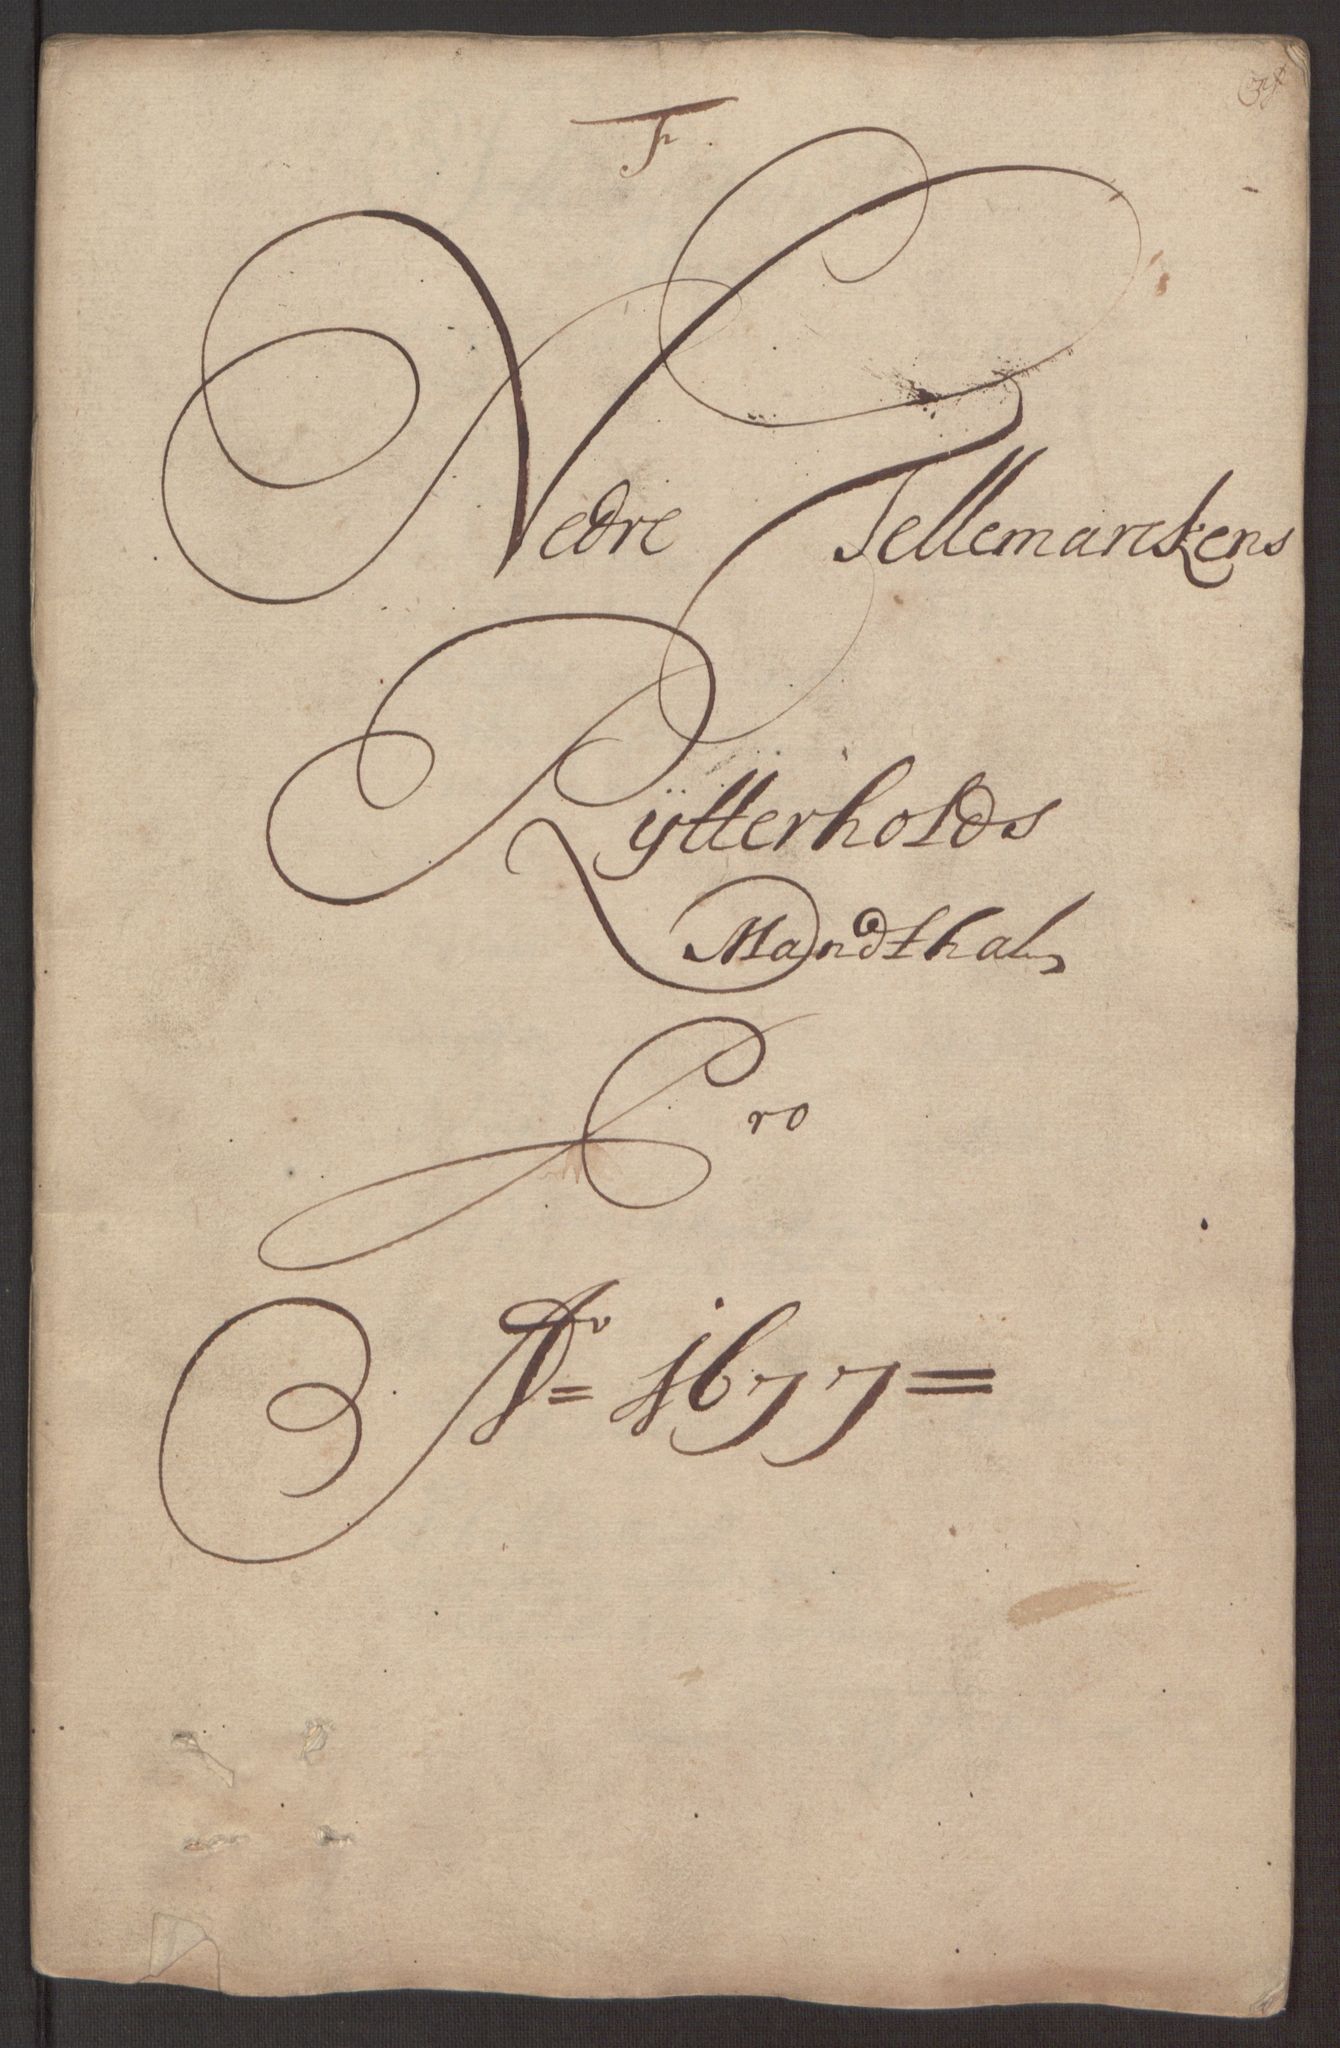 F.
Nedre Tellemarckens
Rÿtterholds
Mandthal
Pro
Ao = 1677 =